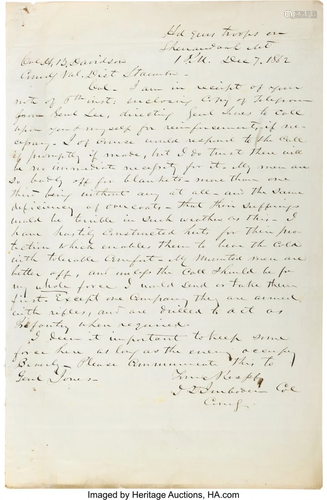 Hd Qrs troops on
Shenandoah Mt
1 P.M. Dec 7, 1862
Col H. B. Davidson
Comdg Val. Dist Staunton
Col. I am in receipt of your
note of 5th inst, enclosing copy of Telegram
from Genl Lee, directing Genl Jones to call
upon you & myself for reinforcements, if nec-
essary. I of course would respond to the call
if promptly if made, but I do trust there will
be no immediate necessity for it. My men are
so badly off for blankets more than one
third being without any at all - and the same
deficiency of overcoats - that their sufferings
would be terrible in such weather as this. I
have hastily constructed huts for their pro-
tection which enables them to bear the cold
with tolerable comfort. My mounted men are
better off, and unless the call should be for
my whole force I would send or take them
first. Except one company, they are armed
with rifles, and are drilled to act as
Infantry when required.
I deem it important to keep some
force here as long as the enemy occupy
Beverly. Please communicate this to
Genl Jones -
Yours Respty
J D Imboden Col
Comg
Imaged by Heritage Auctions, HA.com